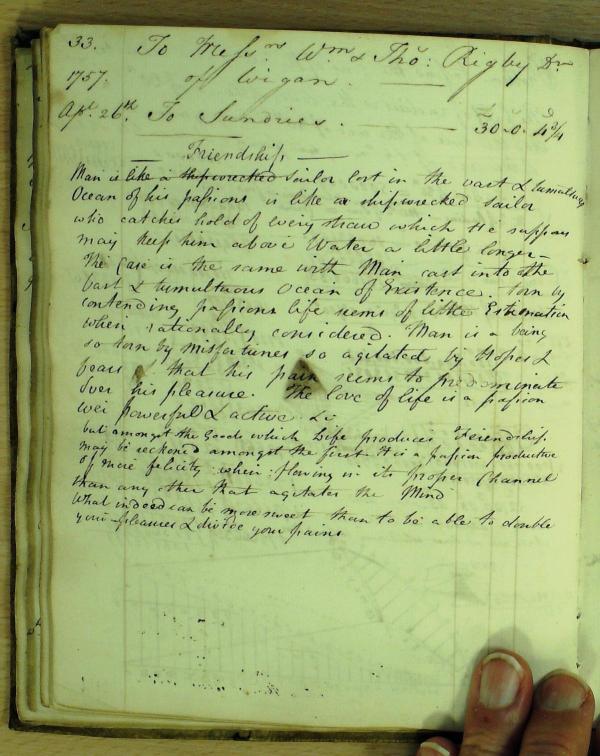 33. To Messrs Wm & Tho: Rigby Dr
1757. of Wigan.
Apl. 26th To Sundries. 30-0-4 3/4
Friendship
Man is like a shipwrecked Sailor lost in the vast & tumultuous
Ocean of his passions is like a shipwrecked Sailor
who catches hold of every straw which He supposes
may keep him above Water a little longer-
The Case is the same with Man cast into the
Vast & tumultuous Ocean of Existence. Torn by
contending passions life seems of little Estimation
when rationally considered. Man is a being
so torn by Misfortunes so agitated by Hopes &
fears that his pain seems to predominate
over his pleasure. The love of life is a passion
powerful & active. &c
but amongst the Goods which Life produces Friendship
may be reckoned amongst the first. It is a passion productive
of more felicity when flowing in its proper Channel
than any other that agitates the Mind
What indeed can be more sweet than to be able to double
your pleasures & divide your pains